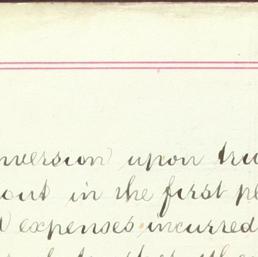 nversion upon tru
out in the first pe
d expenses incurred